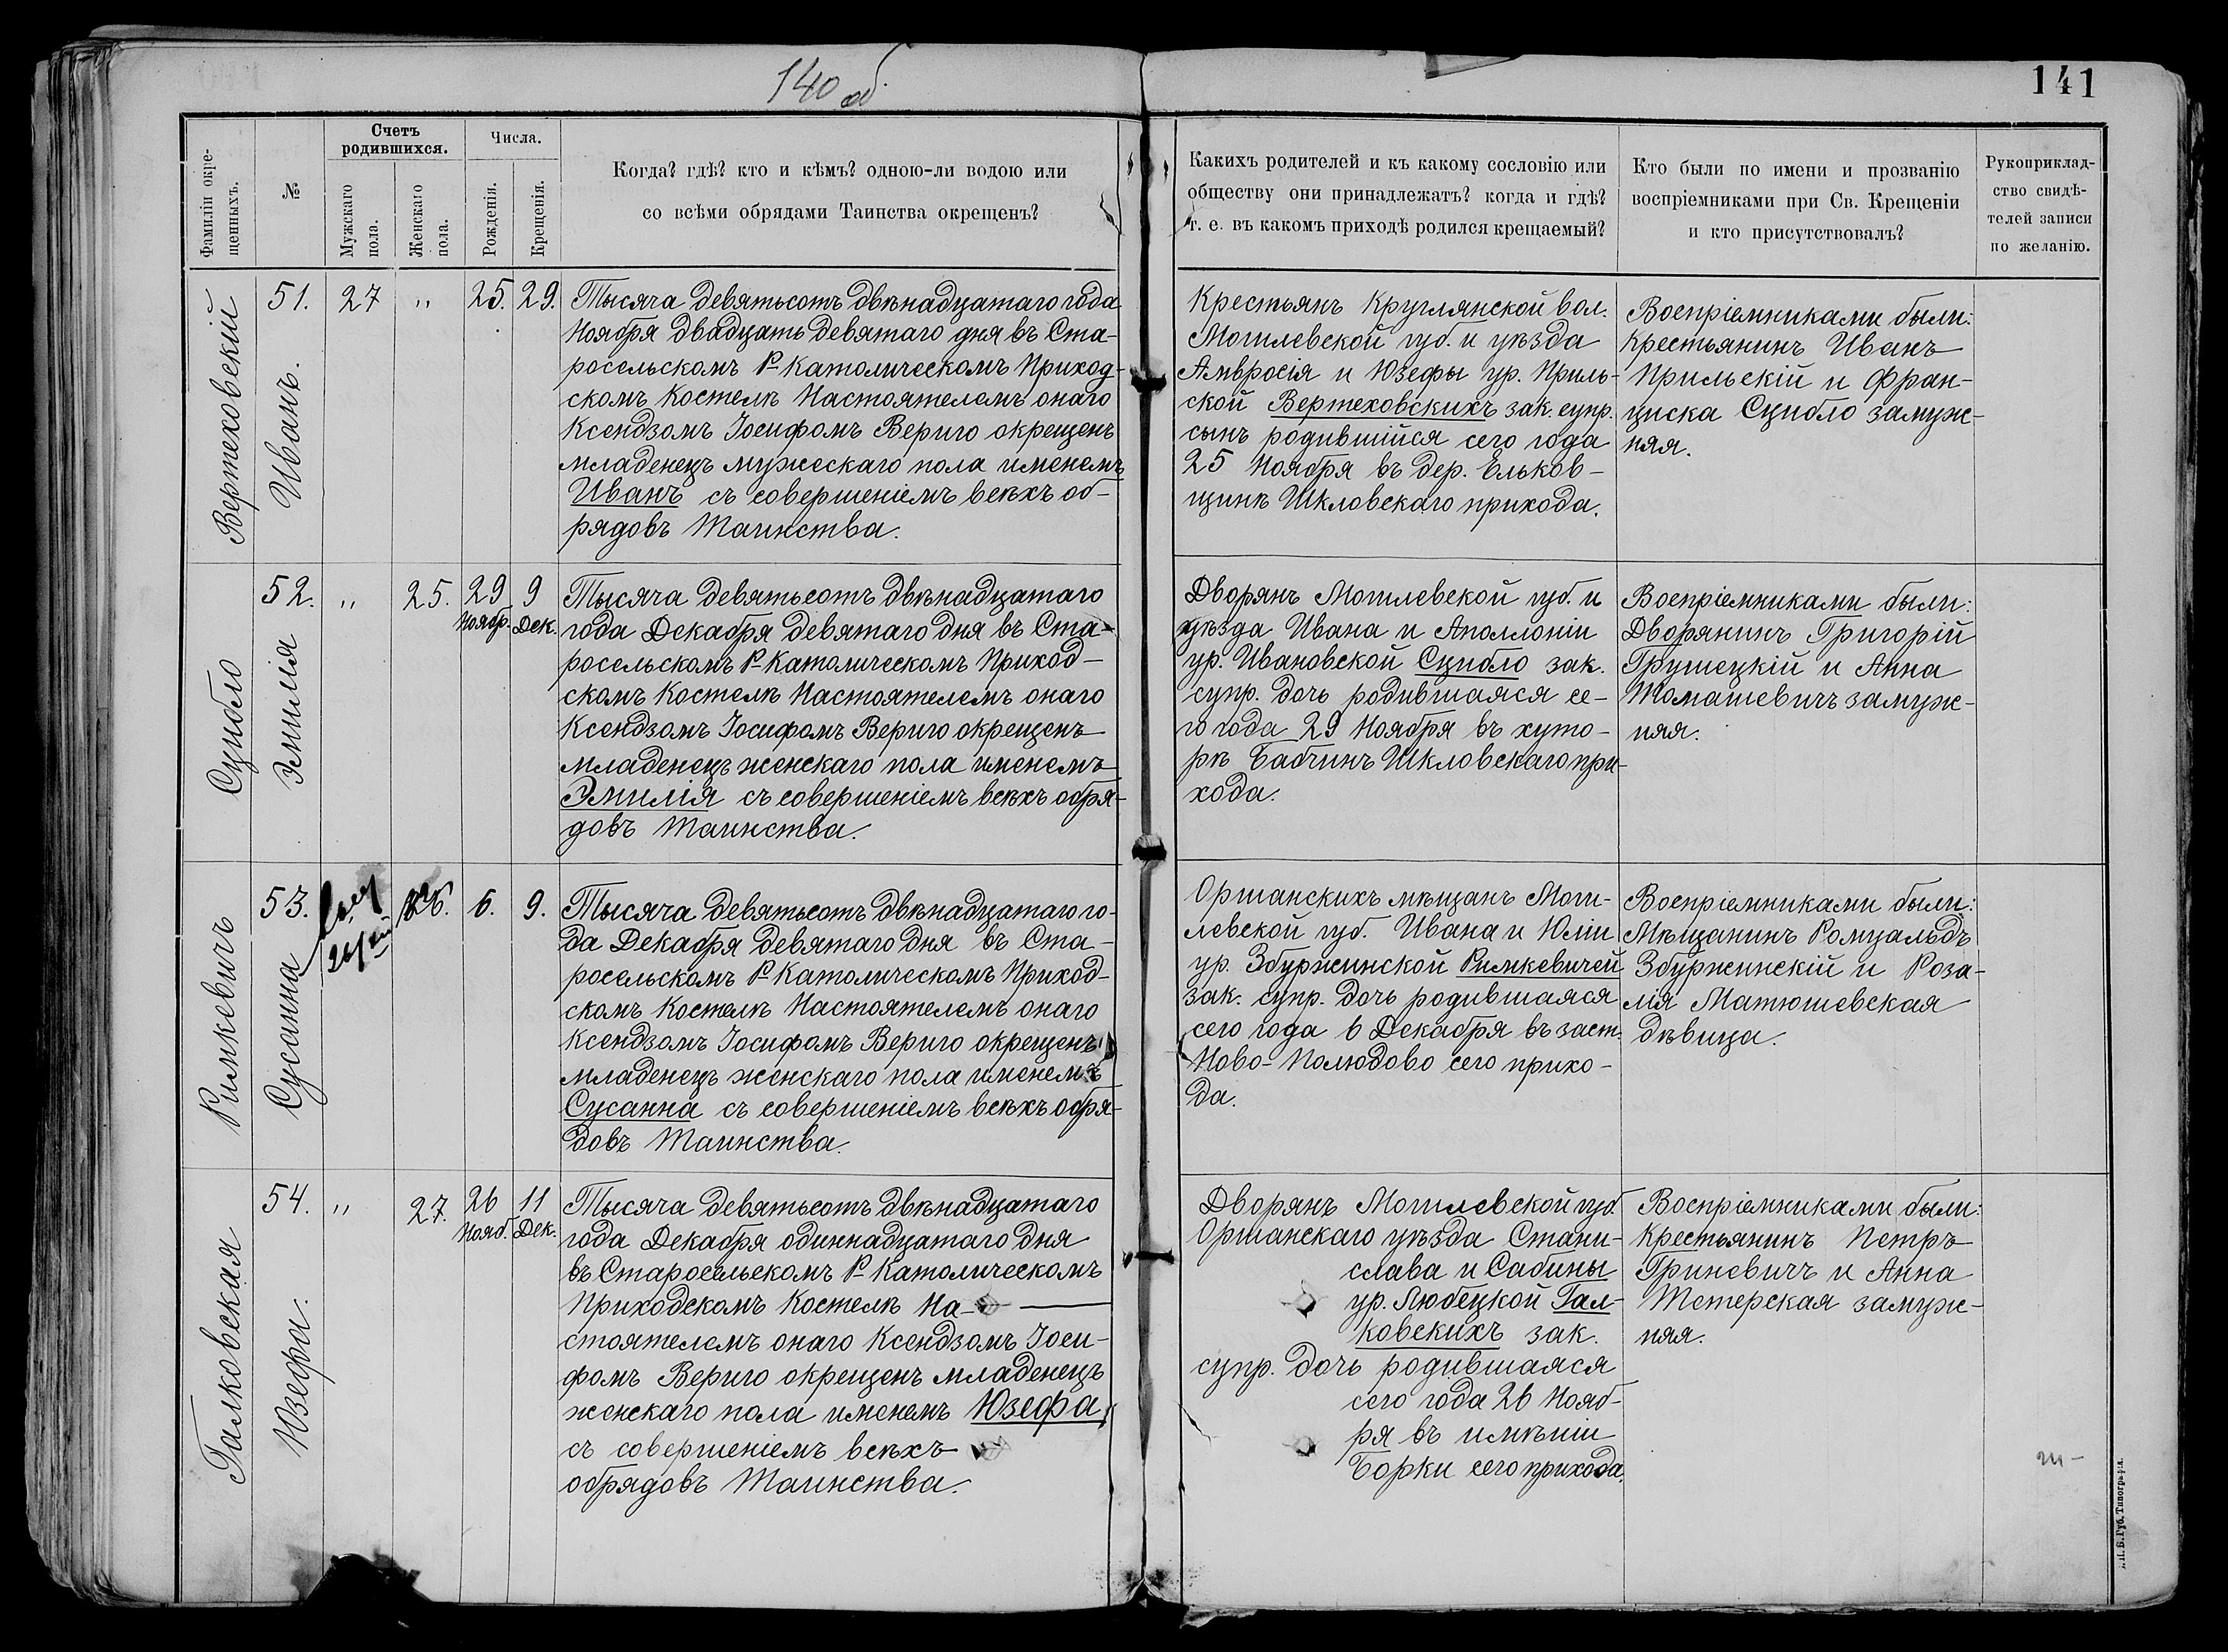 140 об.
141
Фамиліи окре-
щенныхъ.
№
Счетъ
родившихся.
Мужскаго
пола.
Женскаго
пола.
Числа.
Рожденія.
Крещенія.
Когда? гдѣ? кто и кѣмъ? одною-ли водою или
со всѣми обрядами Таинства окрещенъ?
Какихъ родителей и къ какому сословію или
обществу они принадлежатъ? когда и гдѣ?
т. е. въ какомъ приходѣ родился крещаемый?
Кто были по имени и прозванію
воспріемниками при Св. Крещеніи
и кто присутствовалъ?
Рукоприклад-
ство свидѣ-
телей записи
по желанію.
Вертеховскій
Иванъ.
51.
27
"
25.
29.
Тысяча девятьсотъ двѣнадцатаго года
Ноября двадцать девятаго дня въ Ста-
росельскомъ Р-Католическомъ Приход-
скомъ Костелѣ Настоятелемъ онаго
Ксендзомъ Іосифомъ Вериго окрещенъ
младенецъ мужескаго пола именемъ
Иванъ съ совершеніемъ всѣхъ об-
рядовъ Таинства.
Крестьянъ Круглянской вол.
Могилевской губ. и уѣзда
Амвросія и Юзефы ур. Приль-
ской Вертеховскихъ зак. супр.
сынъ родившійся сего года
25 Ноября въ дер. Ельков-
щинѣ Шкловскаго прихода.
Воспріемниками были:
Крестьянинъ Иванъ
Прильскій и Фран-
циска Сцибло замуж-
няя.
Сцибло
Эмилія
52.
"
25.
29
Ноябр.
9
Дек.
Тысяча девятьсотъ двѣнадцатаго
года Декабря девятаго дня въ Ста-
росельскомъ Р-Католическомъ Приход-
скомъ Костелѣ Настоятелемъ онаго
Ксендзомъ Іосифомъ Вериго окрещенъ
младенецъ женскаго пола именемъ
Эмилія съ совершеніемъ всѣхъ обря-
довъ Таинства.
Дворянъ Могилевской губ. и
уѣзда Ивана и Аполлоніи
ур. Ивановской Сцибло зак.
супр. дочь родившаяся се-
го года 29 Ноября въ хуто-
рѣ Бабчинъ Шкловскаго при-
хода.
Воспріемниками были:
Дворянинъ Григорій
Грушецкій и Анна
Томашевичъ замуж-
няя.
Римкевичъ
Сусанна
53.
26.
6.
9.
Тысяча девятьсотъ двѣнадцатаго го-
да Декабря девятаго дня въ Ста-
росельскомъ Р-Католическомъ Приход-
скомъ Костелѣ Настоятелемъ онаго
Ксендзомъ Іосифомъ Вериго окрещенъ
младенецъ женскаго пола именемъ
Сусанна съ совершеніемъ всѣхъ обря-
довъ Таинства.
Оршанскихъ мѣщанъ Моги-
левской губ. Ивана и Юліи
ур. Збуржинской Римкевичей
зак. супр. дочь родившаяся
сего года 6 Декабря въ заст.
Ново-Полюдово сего прихо-
да.
Воспріемниками были:
Мѣщанинъ Ромуальдъ
Збуржинскій и Роза-
лія Матюшевская
дѣвица.
Галковская
Юзефа.
54.
"
27.
26
Нояб.
11
Дек.
Тысяча девятьсотъ двѣнадцатаго
года Декабря одиннадцатаго дня
въ Старосельскомъ Р-Католическомъ
Приходскомъ Костелѣ На-
стоятелемъ онаго Ксендзомъ Іоси-
фомъ Вериго окрещенъ младенецъ
женскаго пола именемъ Юзефа
съ совершеніемъ всѣхъ
обрядовъ Таинства.
Дворянъ Могилевской губ.
Оршанскаго уѣзда Стани-
слава и Сабины
ур. Любецкой Гал-
ковскихъ зак.
супр. дочь родившаяся
сего года 26 Нояб-
ря въ имѣніи
Борки сего прихода.
Воспріемниками были:
Крестьянинъ Петръ
Гриневичъ и Анна
Тетерская замуж-
няя.
Губ. Типографія.